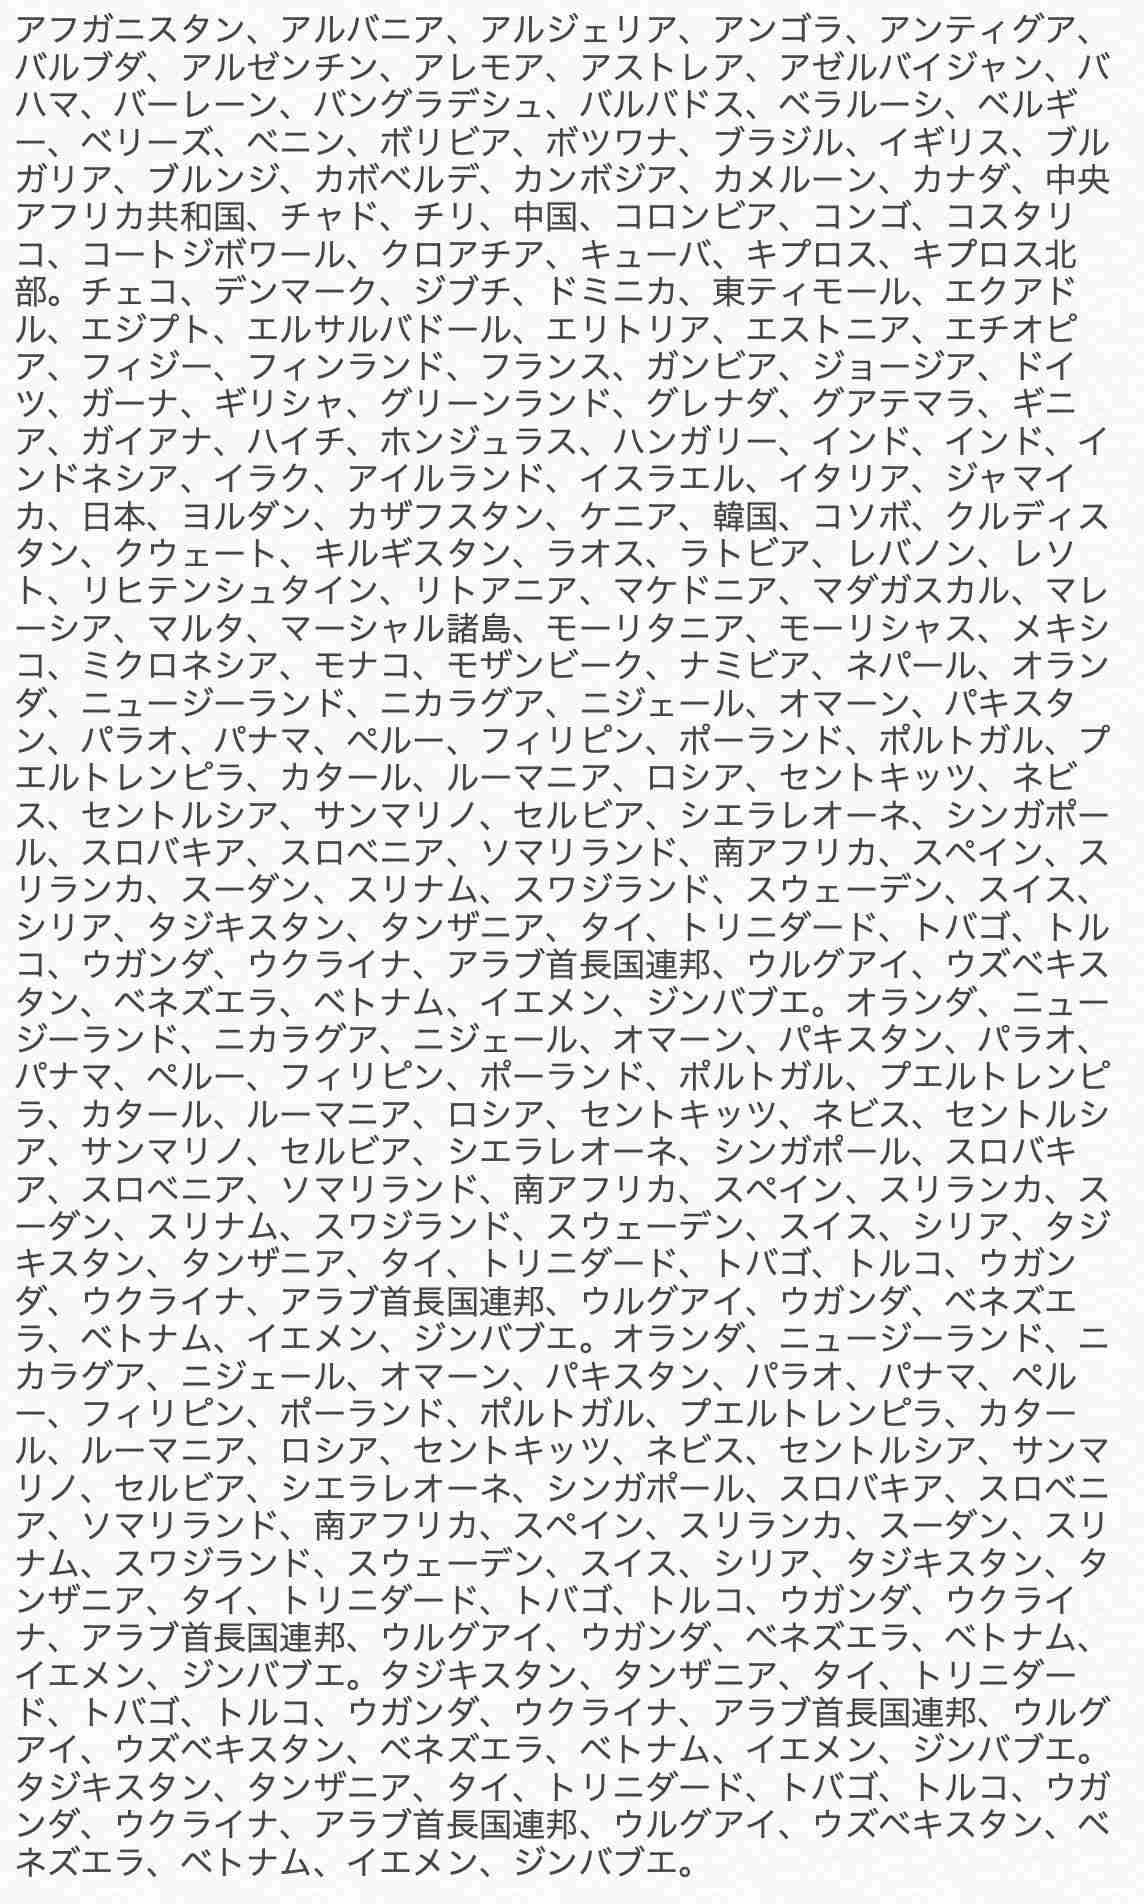 アフガニスタン、アルバニア、アルジェリア、アンゴラ、アンティグア、
バルブダ、アルゼンチン、アレモア、アストレア、アゼルバイジャン、バ
ハマ、バーレーン、バングラデシュ、バルバドス、ベラルーシ、ベルギ
ー、ベリーズ、ベニン、ボリビア、ボツワナ、ブラジル、イギリス、ブル
ガリア、ブルンジ、カボベルデ、カンボジア、カメルーン、カナダ、中央
アフリカ共和国、チャド、チリ、中国、コロンビア、コンゴ、コスタリ
コ、コートジボワール、クロアチア、キューバ、キプロス、キプロス北
部。チェコ、デンマーク、ジブチ、ドミニカ、東ティモール、エクアド
ル、エジプト、エルサルバドール、エリトリア、エストニア、エチオピ
ア、フィジー、フィンランド、フランス、ガンビア、ジョージア、ドイ
ツ、ガーナ、ギリシャ、グリーンランド、グレナダ、グアテマラ、ギニ
ア、ガイアナ、ハイチ、ホンジュラス、ハンガリー、インド、インド、イ
ンドネシア、イラク、アイルランド、イスラエル、イタリア、ジャマイ
カ、日本、ヨルダン、カザフスタン、ケニア、韓国、コソボ、クルディス
タン、クウェート、キルギスタン、ラオス、ラトビア、レバノン、レソ
ト、リヒテンシュタイン、リトアニア、マケドニア、マダガスカル、マレ
ーシア、マルタ、マーシャル諸島、モーリタニア、モーリシャス、メキシ
コ、ミクロネシア、モナコ、モザンビーク、ナミビア、ネパール、オラン
ダ、ニュージーランド、ニカラグア、ニジェール、オマーン、パキスタ
ン、パラオ、パナマ、ペルー、フィリピン、ポーランド、ポルトガル、プ
エルトレンピラ、カタール、ルーマニア、ロシア、セントキッツ、ネビ
ス、セントルシア、サンマリノ、セルビア、シエラレオーネ、シンガポー
ル、スロバキア、スロベニア、ソマリランド、南アフリカ、スペイン、ス
リランカ、スーダン、スリナム、スワジランド、スウェーデン、スイス、
シリア、タジキスタン、タンザニア、タイ、トリニダード、トバゴ、トル
コ、ウガンダ、ウクライナ、アラブ首長国連邦、ウルグアイ、ウズベキス
タン、ベネズエラ、ベトナム、イエメン、ジンバブエ。オランダ、ニュー
ジーランド、ニカラグア、ニジェール、オマーン、パキスタン、パラオ、
パナマ、ペルー、フィリピン、ポーランド、ポルトガル、プエルトレンピ
ラ、カタール、ルーマニア、ロシア、セントキッツ、ネビス、セントルシ
ア、サンマリノ、セルビア、シエラレオーネ、シンガポール、スロバキ
ア、スロベニア、ソマリランド、南アフリカ、スペイン、スリランカ、ス
ーダン、スリナム、スワジランド、スウェーデン、スイス、シリア、タジ
キスタン、タンザニア、タイ、トリニダード、トバゴ、トルコ、ウガン
ダ、ウクライナ、アラブ首長国連邦、ウルグアイ、ウガンダ、ベネズエ
ラ、ベトナム、イエメン、ジンバブエ。オランダ、ニュージーランド、ニ
カラグア、ニジェール、オマーン、パキスタン、パラオ、パナマ、ペル
ー、フィリピン、ポーランド、ポルトガル、プエルトレンピラ、カター
ル、ルーマニア、ロシア、セントキッツ、ネビス、セントルシア、サンマ
リノ、セルビア、シエラレオーネ、シンガポール、スロバキア、スロベニ
ア、ソマリランド、南アフリカ、スペイン、スリランカ、スーダン、スリ
ナム、スワジランド、スウェーデン、スイス、シリア、タジキスタン、タ
ンザニア、タイ、トリニダード、トバゴ、トルコ、ウガンダ、ウクライ
ナ、アラブ首長国連邦、ウルグアイ、ウガンダ、ベネズエラ、ベトナム、
イエメン、ジンバブエ。タジキスタン、タンザニア、タイ、トリニダー
ド、トバゴ、トルコ、ウガンダ、ウクライナ、アラブ首長国連邦、ウルグ
アイ、ウズベキスタン、ベネズエラ、ベトナム、イエメン、ジンバブエ。
タジキスタン、タンザニア、タイ、トリニダード、トバゴ、トルコ、ウガ
ンダ、ウクライナ、アラブ首長国連邦、ウルグアイ、ウズベキスタン、ベ
ネズエラ、ベトナム、イエメン、ジンバブエ。